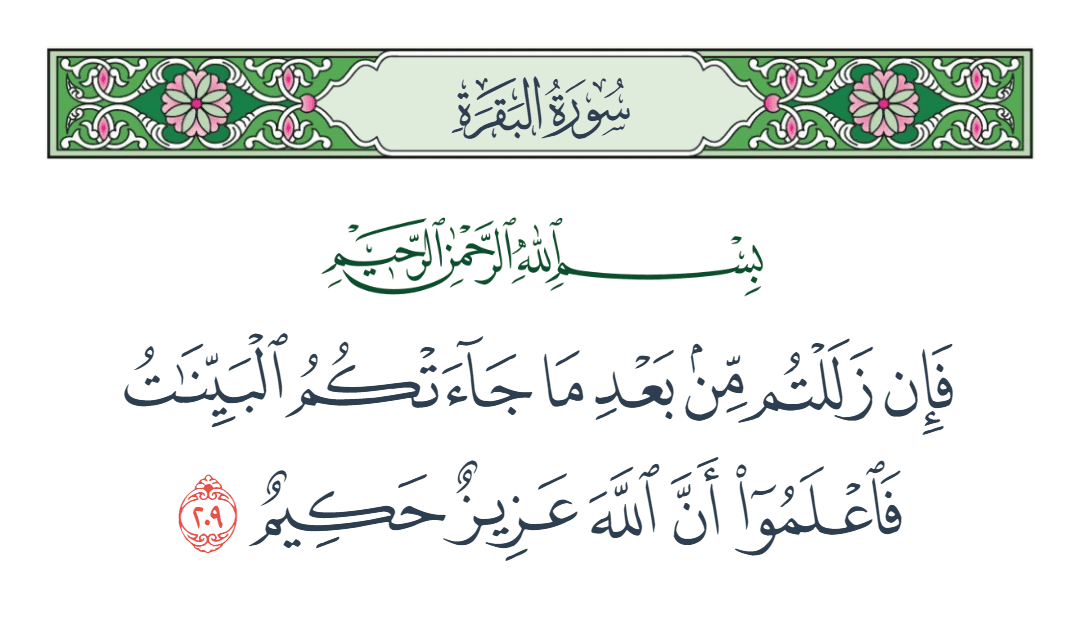 سُورَةُ البَقَرَةِ
بِسْمِ ٱللَّهِ ٱلرَّحْمَٰنِ ٱلرَّحِيمِ
فَإِن زَلَلْتُم مِّنۢ بَعْدِ مَا جَآءَتْكُمُ ٱلْبَيِّنَٰتُ
فَٱعْلَمُوٓا۟ أَنَّ ٱللَّهَ عَزِيزٌ حَكِيمٌ ٢٠٩